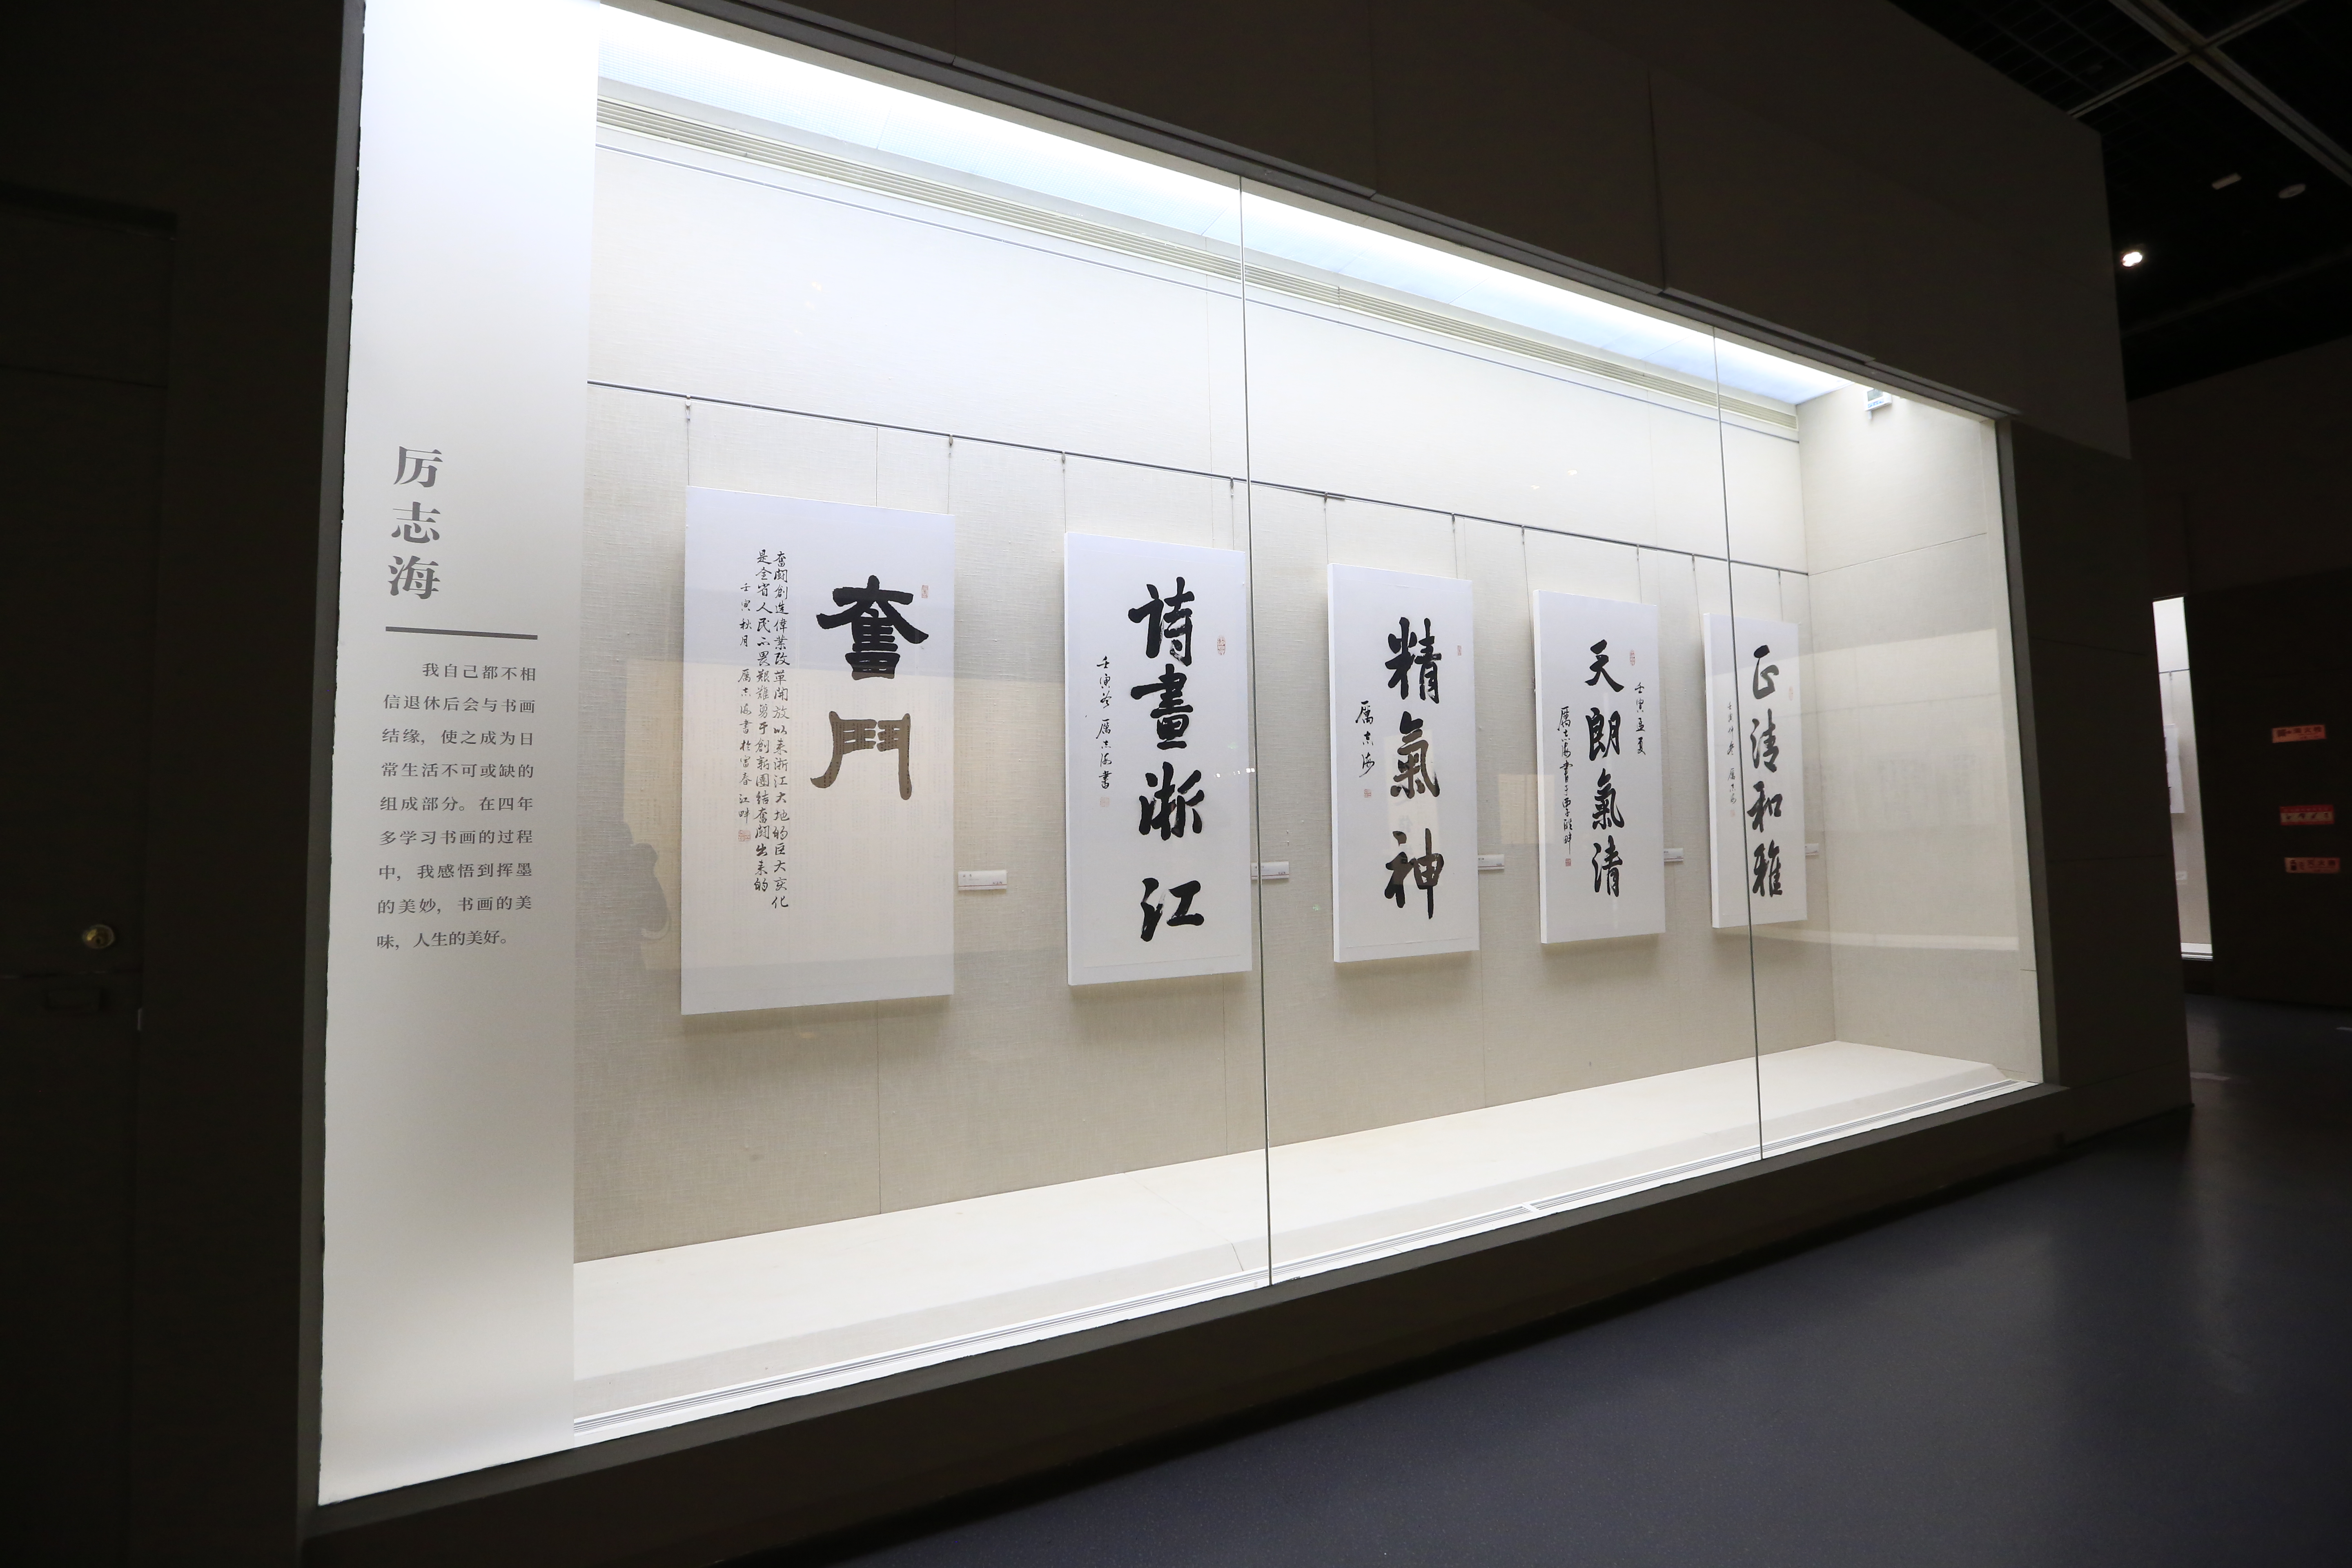 厉志海
我自己都不相
信退休后会与书画
结缘，使之成为日
常生活不可或缺的
组成部分。在四年
多学习书画的过程
中，我感悟到挥墨
的美妙，书画的美
味，人生的美好。
奮鬥
奮鬪創造偉業改革開放以来浙江大地的巨大变化
是全省人民不畏艱難勇于創新團結奮鬪出来的
壬寅秋月 厲志海書於富春江畔
诗畫浙江
壬寅冬 厲志海書
精氣神
厲志海
壬寅孟夏
天朗氣清
正清和雅